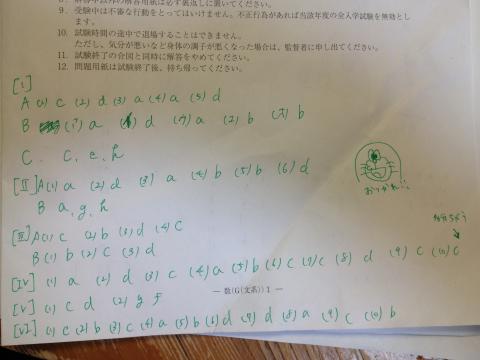 8．解答中以外の解答用紙は必ず裏返しに置いてください。
9．受験中は不審な行動をとってはいけません。不正行為があれば当該年度の全入学試験を無効とします。
10．試験時間の途中で退場することはできません。
ただし、気分が悪いなど身体の調子が悪くなった場合は、監督者に申し出てください。
11．試験終了の合図と同時に解答をやめてください。
12．問題用紙は試験終了後、持ち帰ってください。
[I]
A (1) c (2) d (3) a (4) a (5) d
B (イ) a (ロ) d (ハ) a (ニ) b (ホ) b
C. C, e, h
[II] A(1) a (2) d (3) a (4) b (5) b (6) d
B a, g, h
[III] A(1) c (2) b (3) d (4) C
B(1) b (2) C (3) d
[IV] (1) a (2) d (3) c (4) a (5) b (6) c (7) c (8) d (9) c (10) c
[V] (1) c d (2) g f
— 数(G(文系)) 1 —
[VI] (1) c (2) b (3) c (4) a (5) b (6) d (7) d (8) a (9) c (10) b